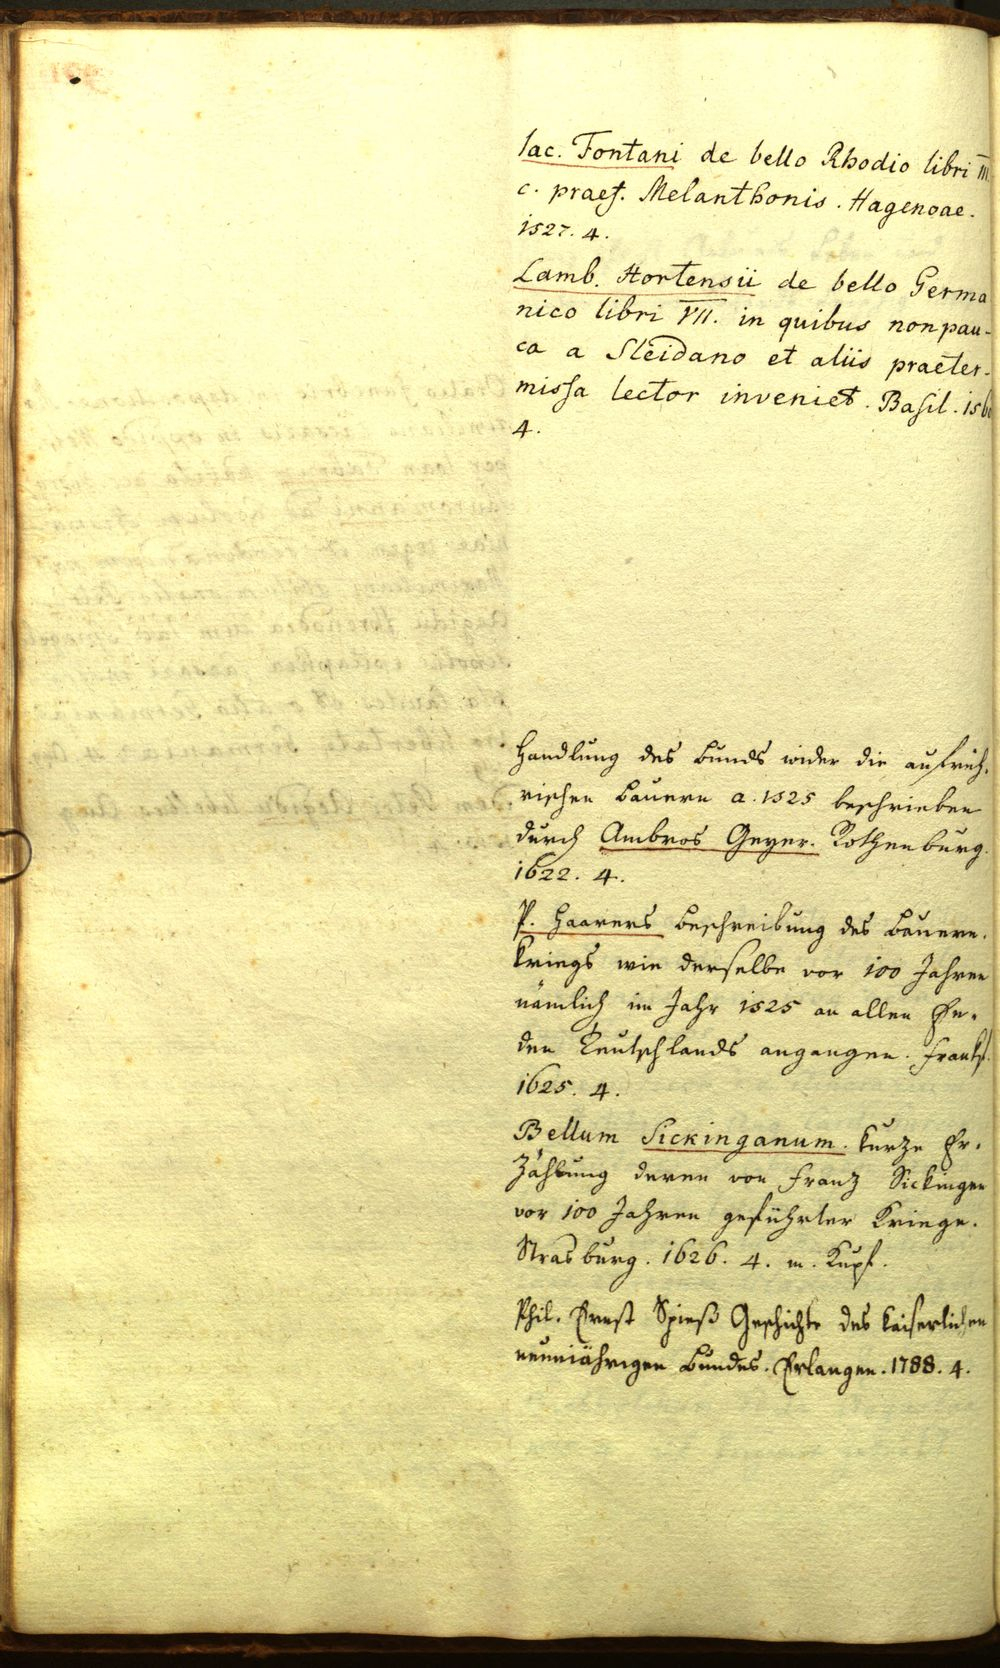 Iac. Fontani de bello Rhodio libri III.
c. praef. Melanthonis. Hagenoae.
1527. 4.
Lamb. Hortensii de bello Germa
nico libri VII. in quibus non pau-
ca a Sleidano et aliis praeter-
missa lector inveniet. Basil. 1560
4.
Handlung des Bunds wider die aufrüh-
rischen Bauern a. 1525 beschrieben
durch Ambros Geyer. Rothenburg.
1622. 4.
P. Haarers Beschreibung des Bauern-
kriegs wie derselbe vor 100 Jahren
nämlich im Jahr 1525 an allen En-
den Teutschlands angangen. Frankf.
1625. 4.
Bellum Sickinganum. kurze Er-
zählung deren von Franz Sickingen
vor 100 Jahren geführter Kriege.
Strasburg. 1626. 4. m. Kupf.
Phil. Ernst Spieß Geschichte des kaiserlichen
neunjährigen Bundes. Erlangen. 1788. 4.